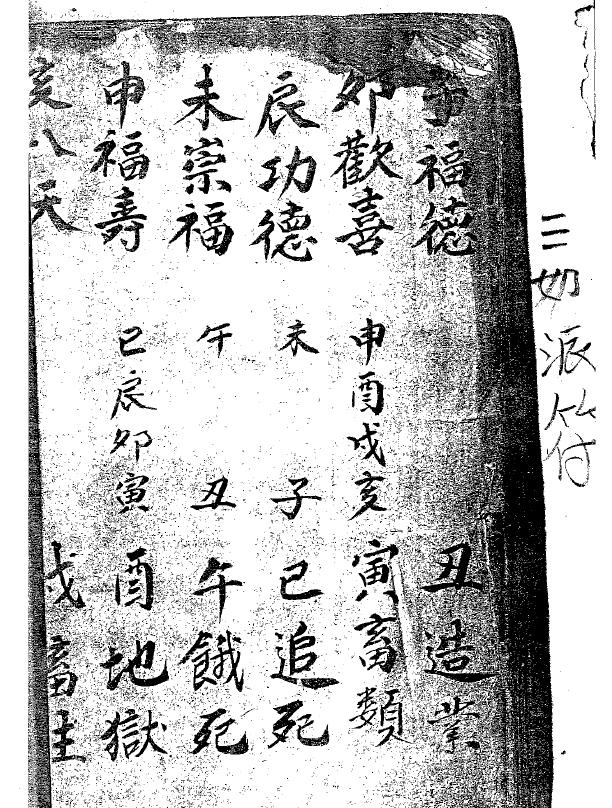 如派符
子福德 丑造業
卯歡喜 申酉戌亥 寅畜類
辰功德 未 子 巳追死
未崇福 午 丑 午餓死
申福壽 巳辰卯寅 酉地獄
亥八天 戌畜生